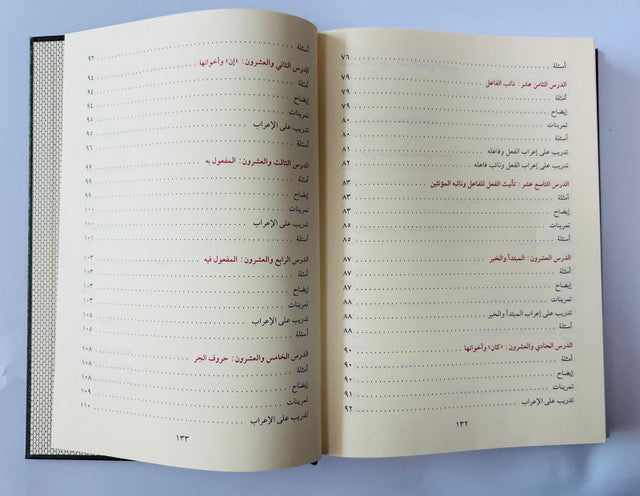 أسئلة ٧٦
الدرس الثامن عشر : نائب الفاعل ٧٩
أمثلة ٧٩
إيضاح ٧٩
تمرينات ٨٠
أسئلة ٨٠
تدريب على إعراب الفعل وفاعله ٨١
تدريب على إعراب الفعل ونائب فاعله ٨٢
الدرس التاسع عشر : تأنيث الفعل للفاعل ونائبه المؤنثين ٨٣
أمثلة ٨٣
إيضاح ٨٣
تمرينات ٨٥
أسئلة ٨٥
الدرس العشرون : المبتدأ والخبر ٨٧
أمثلة ٨٧
إيضاح ٨٧
تمرينات ٨٨
تدريب على إعراب المبتدأ والخبر ٨٨
أسئلة ٨٨
الدرس الحادي والعشرون : «كان» وأخواتها ٩٠
أمثلة ٩٠
إيضاح ٩٠
تمرينات ٩١
تدريب على الإعراب ٩٢
١٣٢
أسئلة ٩٢
الدرس الثاني والعشرون : «إن» وأخواتها ٩٤
أمثلة ٩٤
إيضاح ٩٤
تمرينات ٩٥
تدريب على الإعراب ٩٥
أسئلة ٩٦
الدرس الثالث والعشرون : المفعول به ٩٩
أمثلة ٩٩
إيضاح ٩٩
تمرينات ١٠٠
تدريب على الإعراب ١٠٠
أسئلة ١٠١
الدرس الرابع والعشرون : المفعول فيه ١٠٣
أمثلة ١٠٣
إيضاح ١٠٣
تمرينات ١٠٣
تدريب على الإعراب ١٠٥
أسئلة ١٠٥
الدرس الخامس والعشرون : حروف الجر ١٠٨
أمثلة ١٠٨
إيضاح ١٠٨
تمرينات ١٠٩
تدريب على الإعراب ١١٠
١٣٣